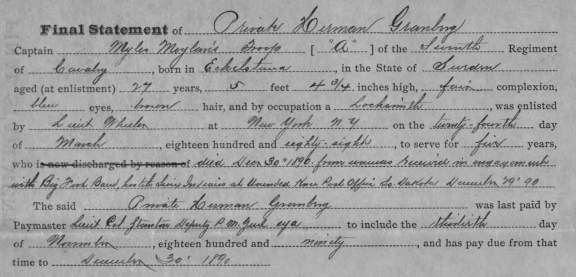 Final Statement of Private Herman Granberg
Captain Myles Moylan's Troop ["A"] of the Seventh Regiment
of Cavalry, born in Eckelstuna, in the State of Sweden
aged (at enlistment) 27 years, 5 feet 4 3/4 inches high, fair complexion,
blue eyes, brown hair, and by occupation a Locksmith, was enlisted
by Lieut Wheeler at New York N.Y. on the twenty-fourth day
of March, eighteen hundred and eighty-eight, to serve for five years,
who is now discharged by reason of died Decr 30" 1890 from wounds received in engagement
with Big Foot Band, hostile Sioux Indians at Wounded Knee Post Office So Dakota December 29" 90
The said Private Herman Granberg was last paid by
Paymaster Lieut Col Stanton Deputy P.M. Genl to include the thirtieth day
of November, eighteen hundred and ninety, and has pay due from that
time to December 30" 1890